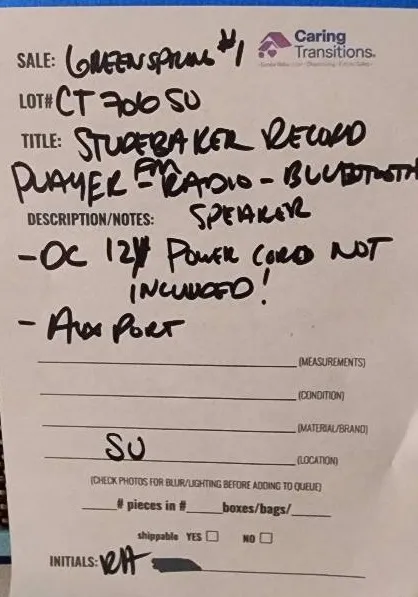 SALE: GREENSPRING #1
Caring
Transitions®
LOT# CT 706 SU
TITLE: STUDEBAKER RECORD
PLAYER - FM RADIO - BLUETOOTH
SPEAKER
DESCRIPTION/NOTES:
- OC 12V POWER CORD NOT
INCLUDED!
- AUX PORT
(MEASUREMENTS)
(CONDITION)
(MATERIAL/BRAND)
SU (LOCATION)
(CHECK PHOTOS FOR BLUR/LIGHTING BEFORE ADDING TO QUEUE)
# pieces in # boxes/bags/
shippable YES NO
INITIALS: RH